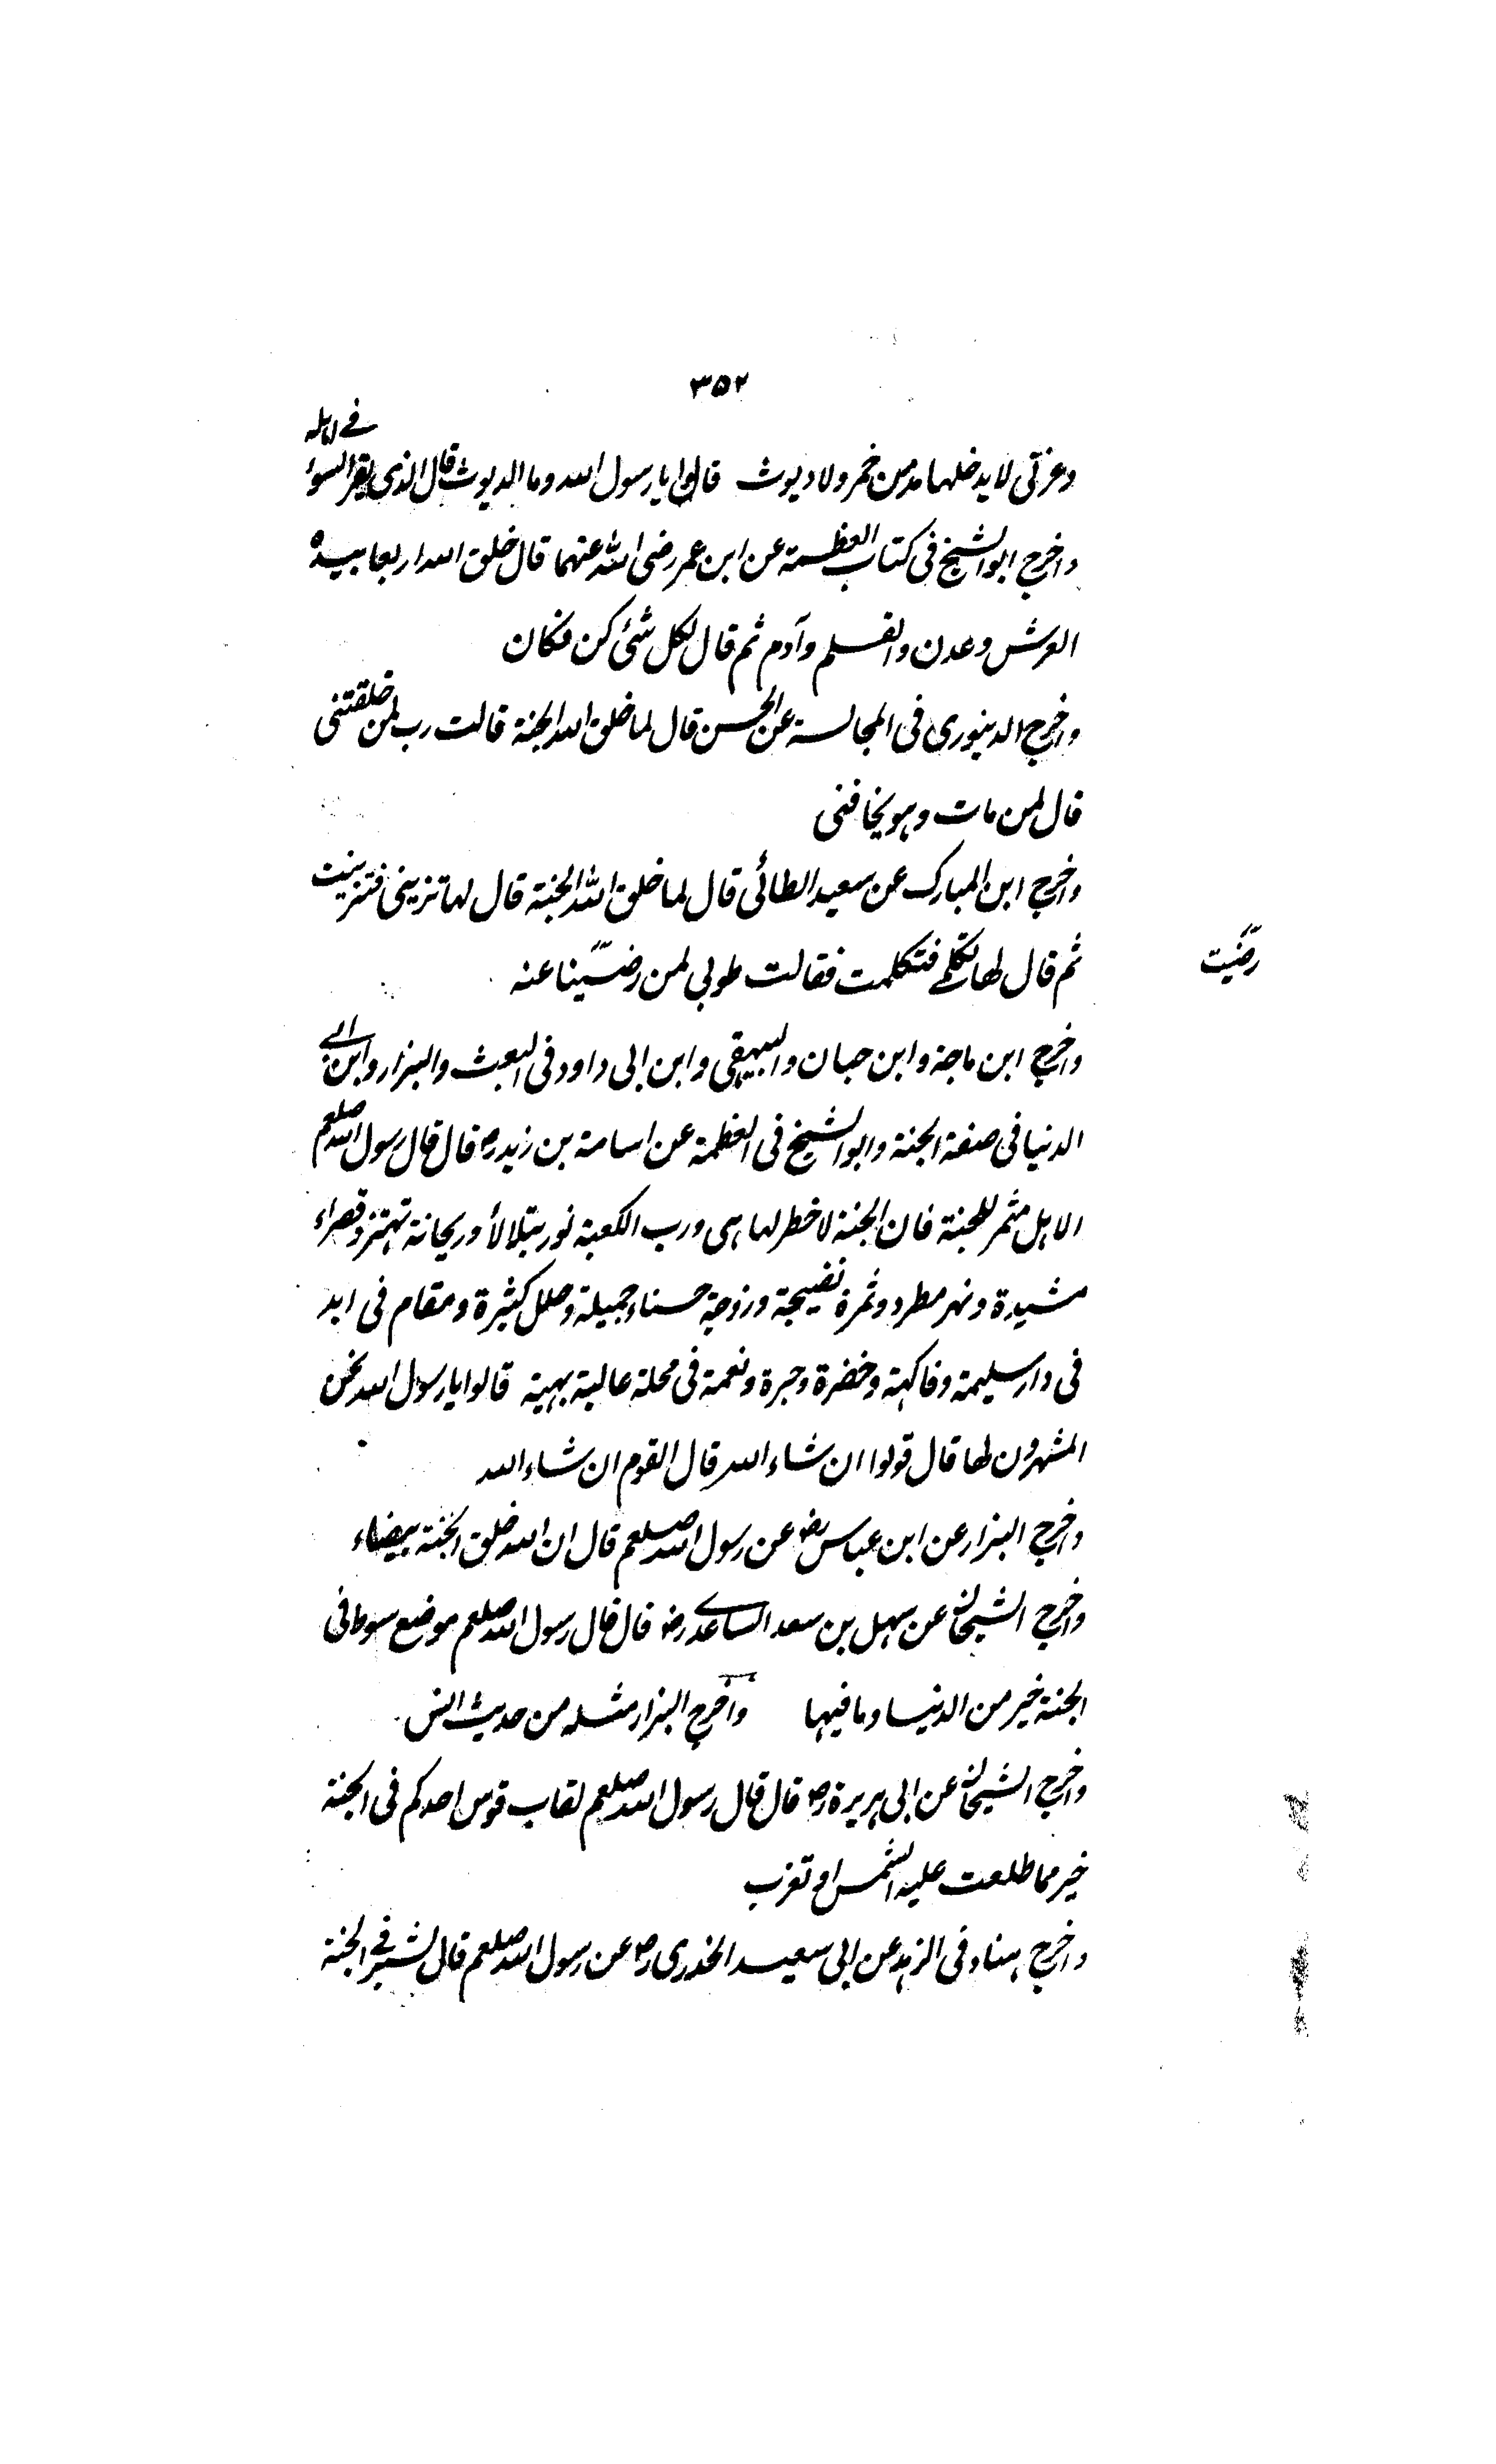 ٣٥٢
وعزتى لا يدخلها مدمن خمر ولا ديوث قالوا يا رسول الله وما الديوث قال الذى يقر السوء
فى اهله
واخرج ابو الشيخ فى كتاب العظمة عن ابن عمر رضى الله عنهما قال خلق الله اربعا بيده
العرش وعدن والقلم وآدم ثم قال لكل شئ كن فكان
واخرج الدينورى فى المجالسة عن الحسن قال لما خلق الله الجنة قالت رب لمن خلقتنى
قال لمن مات وهو يخافنى
واخرج ابن المبارك عن سعيد الطائى قال لما خلق الله الجنة قال لها تزينى فتزينت
ثم قال لها تكلمى فتكلمت فقالت طوبى لمن رضيّنا عنه
رضّيت
واخرج ابن ماجة وابن حبان والبيهقى وابن ابى داود فى البعث والبزار وابن ابى
الدنيا فى صفة الجنة وابو الشيخ فى العظمة عن اسامة بن زيد رض قال قال رسول الله صلعم
الا هل مثمر للجنة فان الجنة لا خطر لها هى ورب الكعبة نور يتلالأ وريحانة تهتز وقصراء
مشيدة ونهر مطرد وثمرة نضيجة وزوجة حسناء جميلة وحلل كثيرة ومقام فى ابد
فى دار سليمة وفاكهة وخضرة وحبرة ونعمة فى محلة عالية بهية قالوا يا رسول الله نحن
المشمرون لها قال قولوا ان شاء الله قال القوم ان شاء الله
واخرج البزار عن ابن عباس رض عن رسول الله صلعم قال ان الله خلق الجنة بيضاء
واخرج الشيخان عن سهل بن سعد الساعدى رض قال قال رسول الله صلعم موضع سوط فى
الجنة خير من الدنيا وما فيها واخرج البزار مثله من حديث انس
واخرج الشيخان عن ابى هريرة رض قال قال رسول الله صلعم لقاب قوس احدكم فى الجنة
خير مما طلعت عليه الشمس او تغرب
واخرج هناد فى الزهد عن ابى سعيد الخدرى رض عن رسول الله صلعم قال لشبر فى الجنة